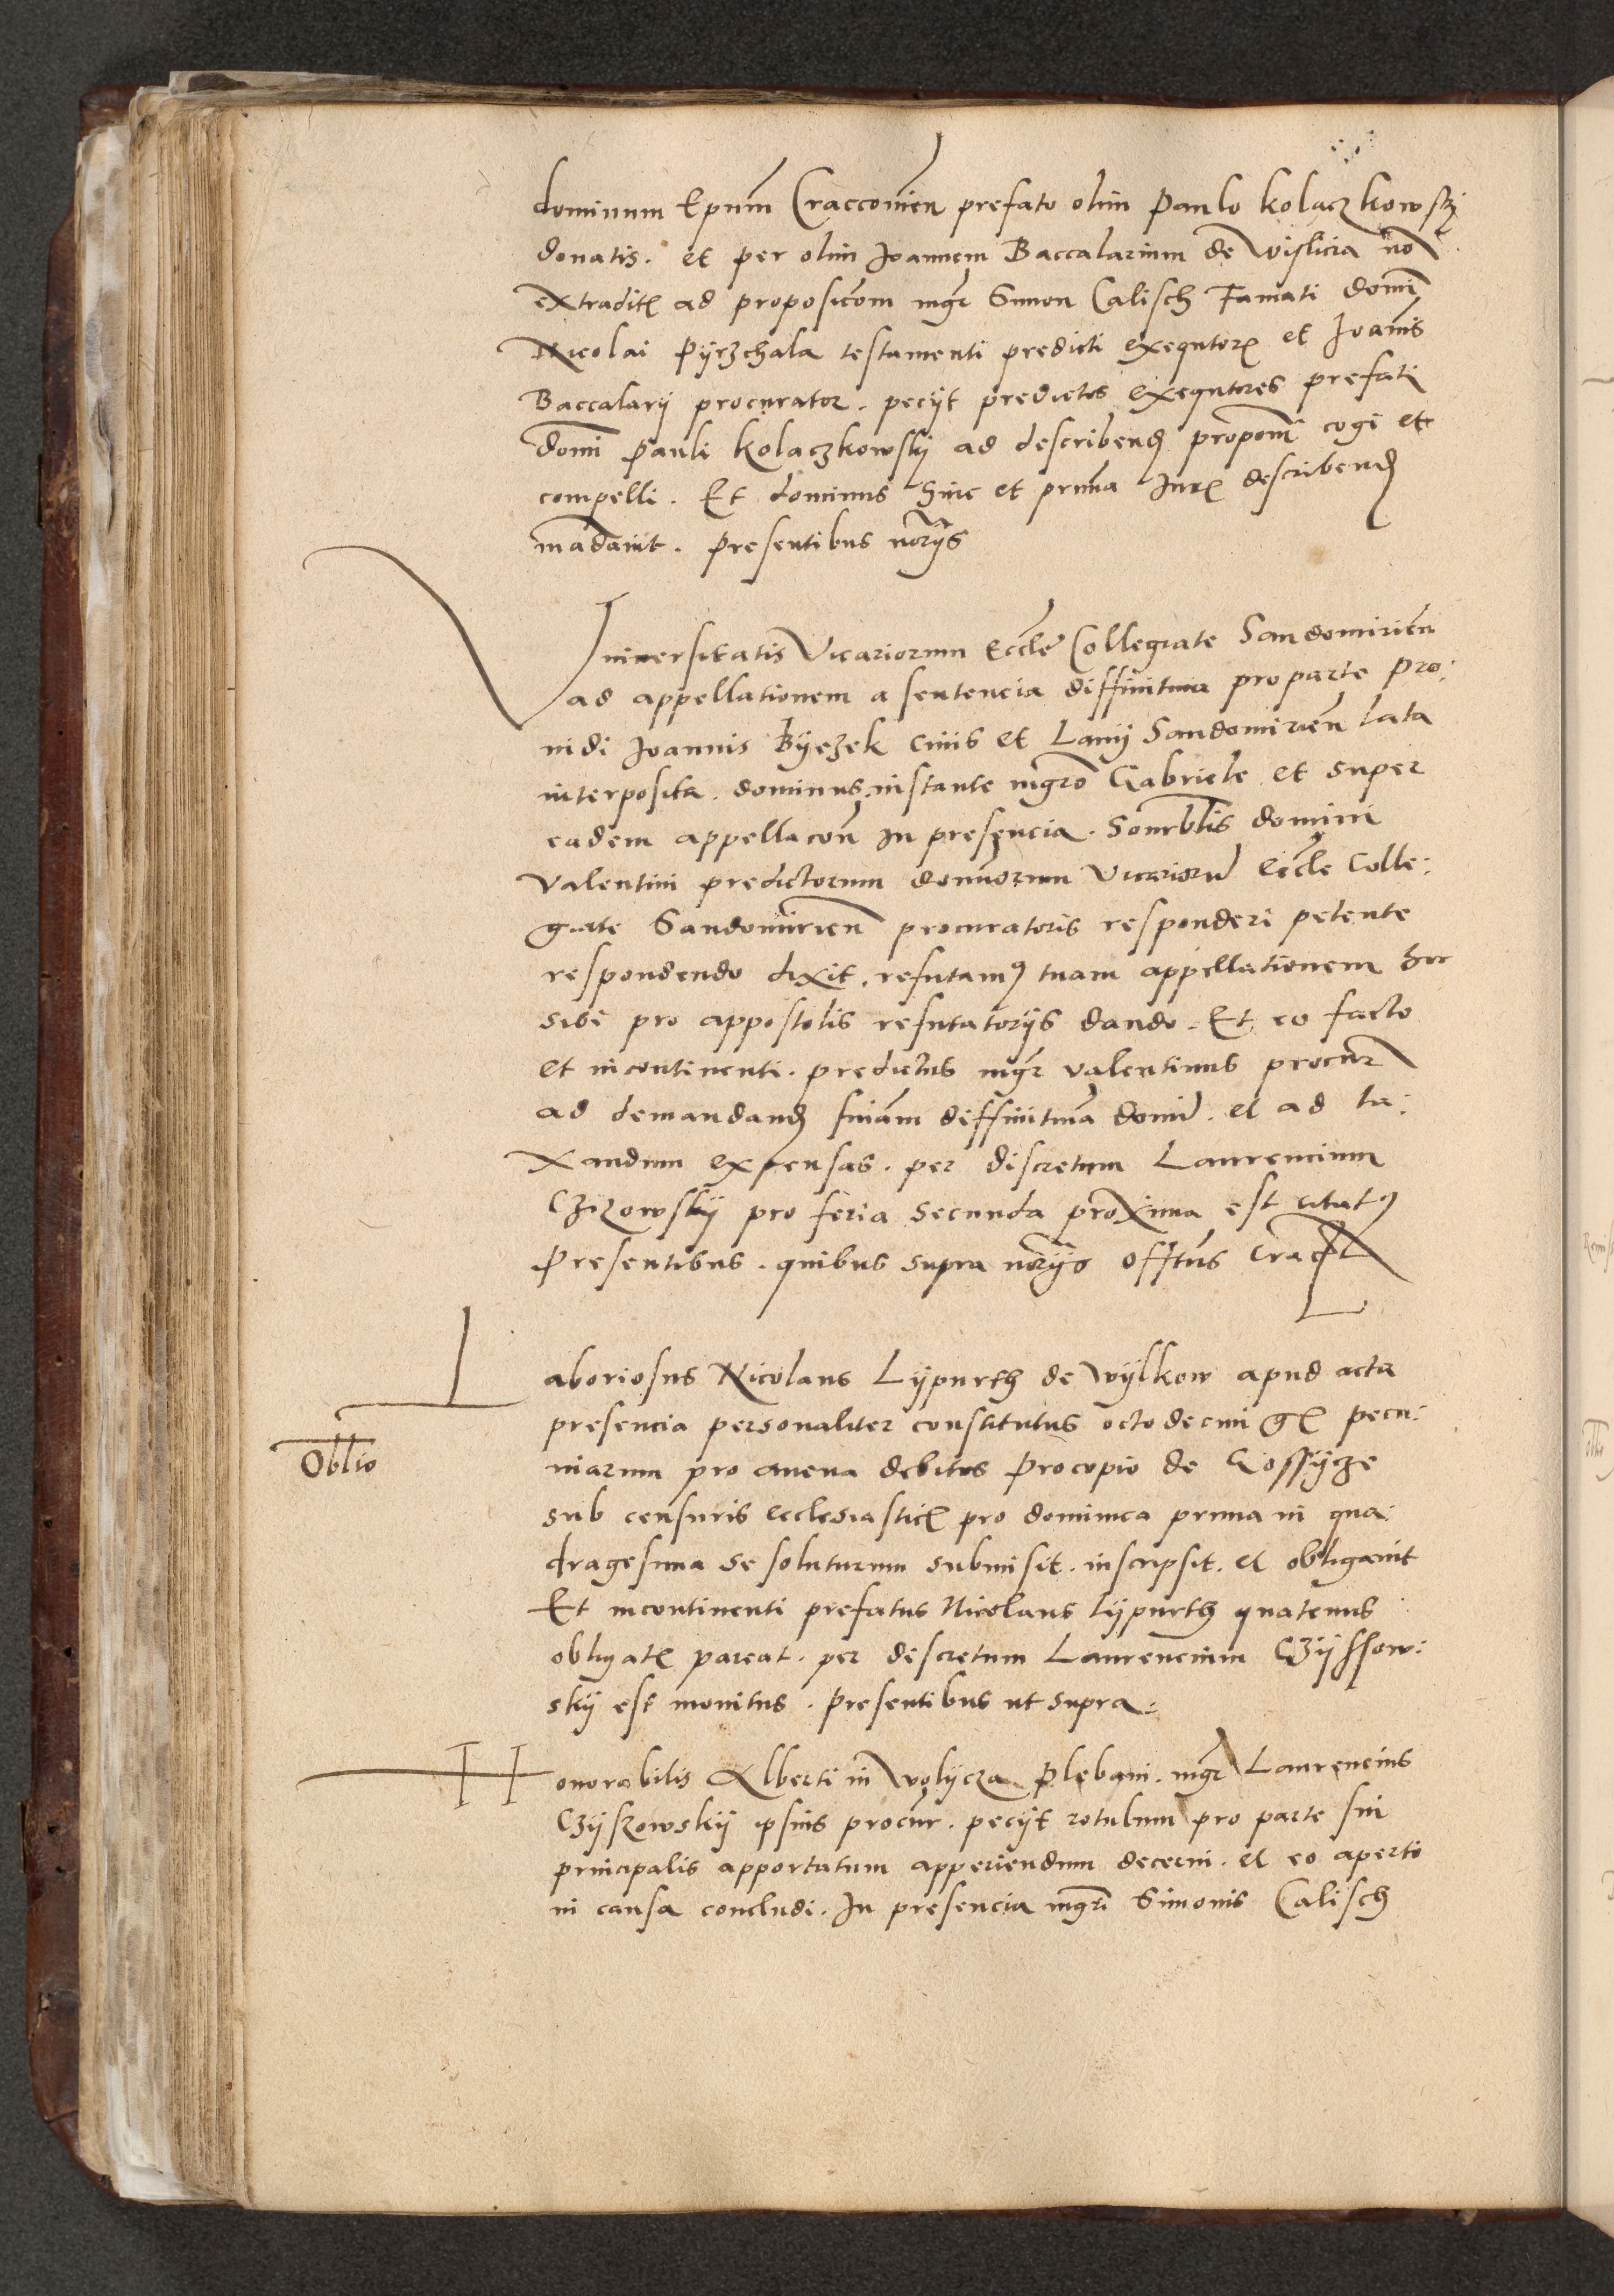 dominum Epum Craccovien prefato olim Paulo Kolaczkowsky
donatis. et per olim Joannem Baccalarium de Wislicia no
extradite ad proposicom mgr Simon Calisch Famati domi
Nicolai Pÿrzchala testamenti predicti exequtor et Joanis
Baccalarÿ procurator. pecÿt predictos exequtores prefati
domi Pauli Kolaczkowskÿ ad describend propom cogi et
compelli. Et dominus hinc et prima Jur describend
madavit. presentibus norÿs
Universitatis Vicariorum Eccle Collegiate Sandomirien
ad appellationem a sentencia diffinitiva pro parte pro:
vidi Joannis Bÿezek civis et Lanÿ Sandomirien lata
interposita. dominus. instante mgro Gabriele et super
eadem appellacon in presencia. honorblis domini
Valentini predictorum dominorum Vicarioru Eccle Colle:
giate Sandomirien procuratoris responderi petente
respondendo dixit. refutamus tuam appellationem hoc
sibi pro appostolis refutatorÿs dando. Et eo facto
et incontinenti. predictus mgr Valentinus procur
ad demandand sniam diffinitiva domi. et ad ta:
xandum expensas. per discretum Laurencium
Czizowskÿ pro feria secunda proxima est citatus
Presentibus. quibus supra norÿs offtus Crac
Laboriosus Nicolaus Lÿpurth de Wÿlkow apud acta
presencia personaliter constitutus octodecim g pecu:
Oblio
niarum pro avena debitos Procopio de Gossÿcze
sub censuris ecclesiastic pro dominica prima in qua:
dragesima se soluturum submisit. inscripsit. et obligavit
Et incontinenti prefatus Nicolaus Lÿpurth quatenus
obligat pareat. per discretum Laurencium Czÿssow:
skÿ est monitus. Presentibus ut supra:
Honorabilis Alberti in Wolÿcza Plebani. mgr Laurencius
Czÿszowskÿ ipsius procur. pecÿt rotulum pro parte sui
principalis apportatum apperiendum decerni. et eo aperto
in causa concludi. In presencia mgri Simonis Calisch